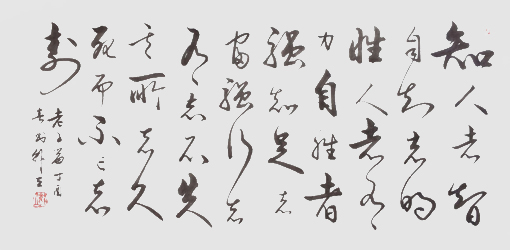 知人者智
自知者明
胜人者有
力自胜者
强知足者
富强行者
有志不失
其所者久
死而不亡者
寿
老子